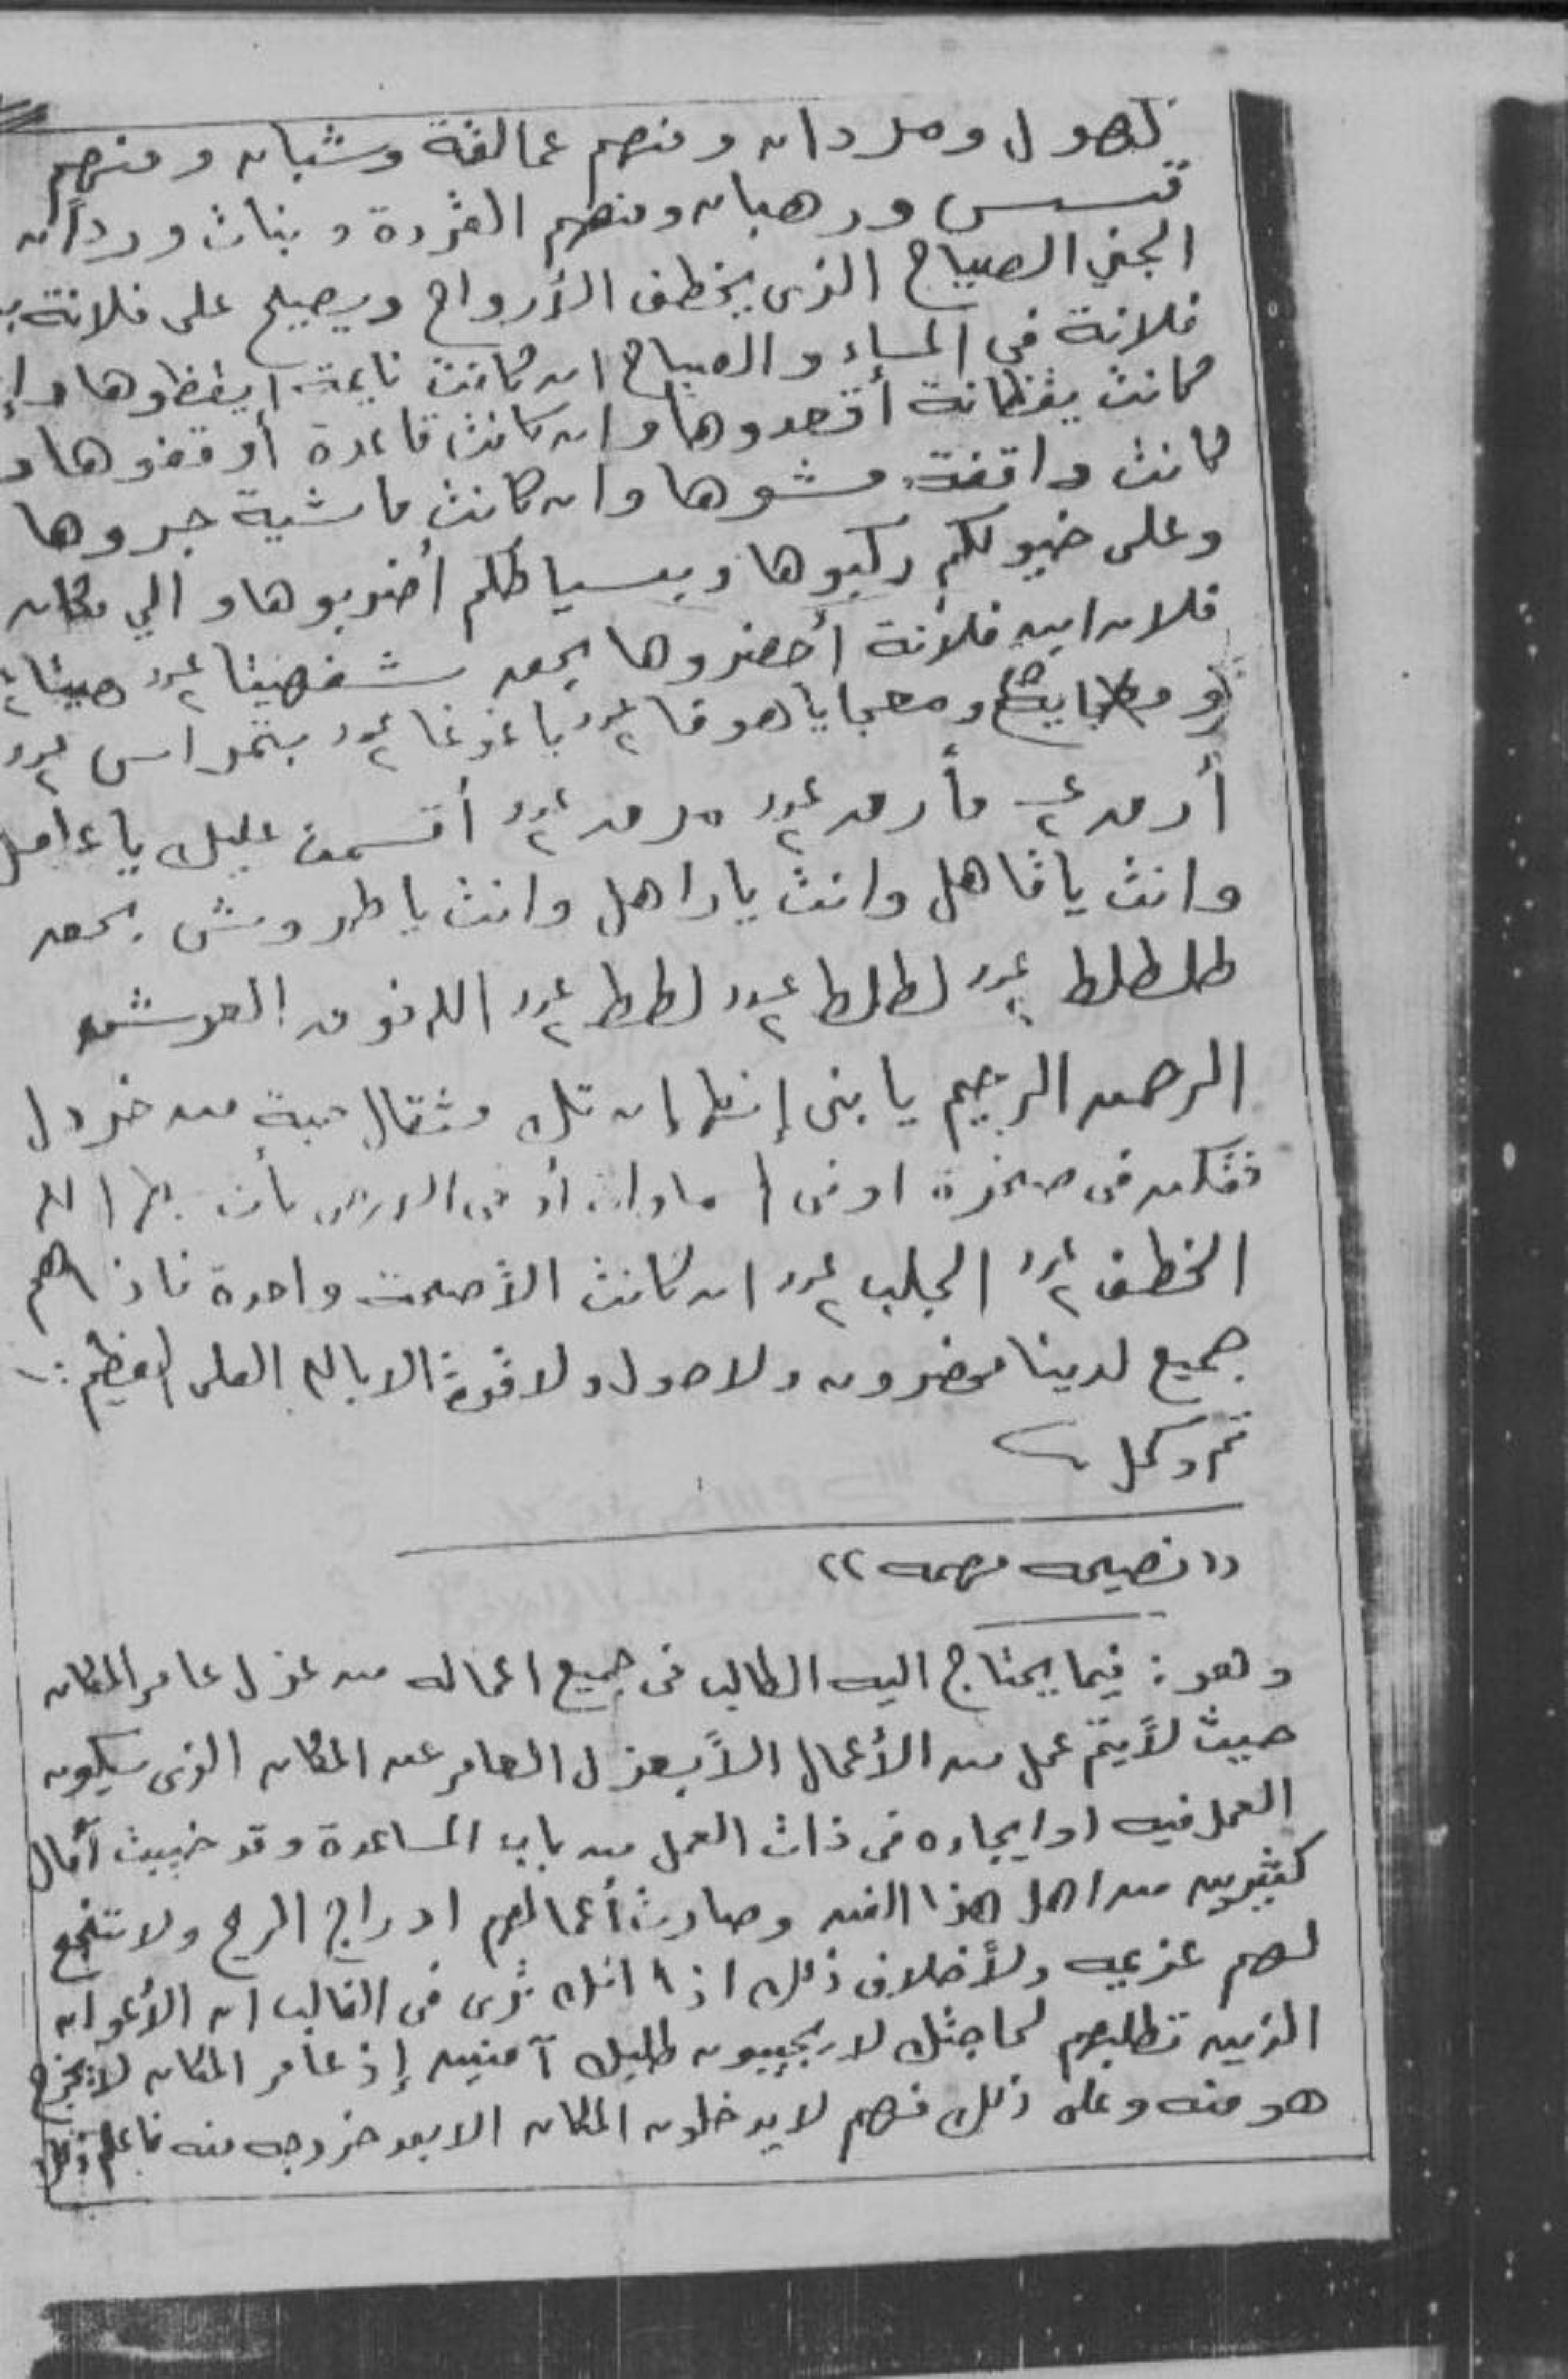 كهول ومردان ومنهم عمالقة وشبان ومنهم
قسس ورهبان ومنهم القردة وبنات وردان
الجني الصياح الذى يخطف الأرواح ويصيح على فلانة
فلانة في المساء والصباح ان كانت نايمة ايقظوها وإ
كانت يقظانة أقعدوها وان كانت قاعدة أوقفوها و
كانت واقفة مشوها وان كانت ماشية جروها
وعلى خيولكم ركبوها وبسياطكم أضربوها والي مكان
فلان ابن فلانة أحضروها بحق
ومعجايا هوقا عدد ٢ باغوغا عدد ٢ عدد ٢
أرمد عدد ٢ أقسمت عليك يا
وانت يا قاهل وانت يا راهل وانت يا طروش بحق
طلطلط عدد ٢ لطلط عدد ٢ لطط عدد ٢ الله فوق العرش
الرحمن الرحيم يا بنى إنها ان تك مثقال حبة من خردل
فتكن فى صخرة او فى السماوات أو فى الارض يأت بها الله
الخطف عدد ٢ الجلب عدد ٢ ان كانت الأصيحة واحدة فاذا هم
جميع لدينا محضرون ولا حول ولا قوة الا بالله العلى العظيم
تم وكمل
(( نصيحه مهمه ))
وهو : فيما يحتاج اليه الطالب فى جميع اعماله من عزل عامر المكان
حيث لا يتم عمل من الأعمال الا بعزل العامر عن المكان الذى سيكون
العمل فيه او ايجاده فى ذات العمل من باب المساعدة وقد خيبت آمال
كثيرين من اهل هذا الفن وصارت أعمالهم ادراج الريح ولا تنجح
لهم عزيمه ولأخلاف ذلك اذا انك ترى فى الغالب ان الأعوان
الذين تطلبهم لحاجتك لا يجيبون طلبك آمنين إذ عامر المكان لا يخرج
هو منه وعلى ذلك فهم لا يدخلون المكان الا بعد خروجه منه فاعلم ذلك